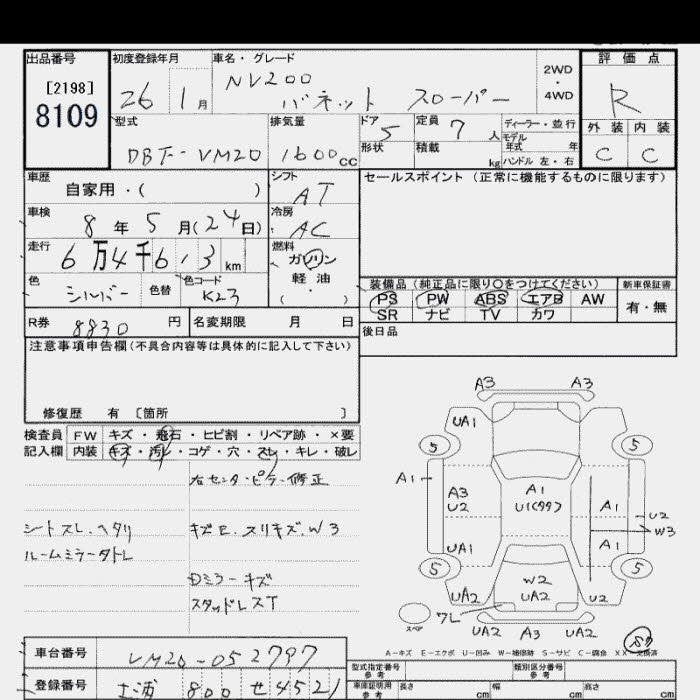 出品番号
[2198]
8109
初度登録年月
26 1月
車名・グレード
NV200
バネット スローパー
2WD
・
4WD
評価点
R
外装 内装
C C
型式
DBF-VM20
排気量
1600cc
ドア
5
定員
7人
形状
積載
kg
ディーラー・並行
モデル
年式 年
ハンドル 左・右
車歴
自家用・( )
シフト
AT
車検
8年5月(24日)
冷房
AC
走行
6万4千6 3km
燃料
ガソリン
軽・油
( ・ )
色
シルバー
色替
色コード
K23
R券
8830円
名変期限 月 日
セールスポイント(正常に機能するものに限ります)
装備品(純正品に限り○をつけてください)
PS PW ABS エアB AW
SR ナビ TV カワ
新車保証書
有・無
後日品
注意事項申告欄(不具合内容等は具体的に記入して下さい)
修復歴 有 〔箇所 〕
検査員
記入欄
FW キズ・飛石・ヒビ割・リペア跡・×要
内装 キズ・汚レ・コゲ・穴・スレ・キレ・破レ
右センターピラー修正
シートスレ.ヘタリ
キズE.スリキズ.W3
ルームミラータトレ
Dミラーキズ
スタッドレスT
A3 A3
UA1
5 5
A1
A3
U2
A1
U1(99)
A1
U2
W3
UA1
A1
5 5
W2
UA2
UA2
U2
スペア
ワレ
UA2 A3 UA2
A-キズ E-エクボ U-凹み W-補修跡 S-サビ C-腐食 XX-交換済
車台番号
VM20-052797
登録番号
土浦 800 せ4521
型式指定番号
参考
類別区分番号
参考
車庫証明用
参考
長さ cm 幅 cm 高さ cm